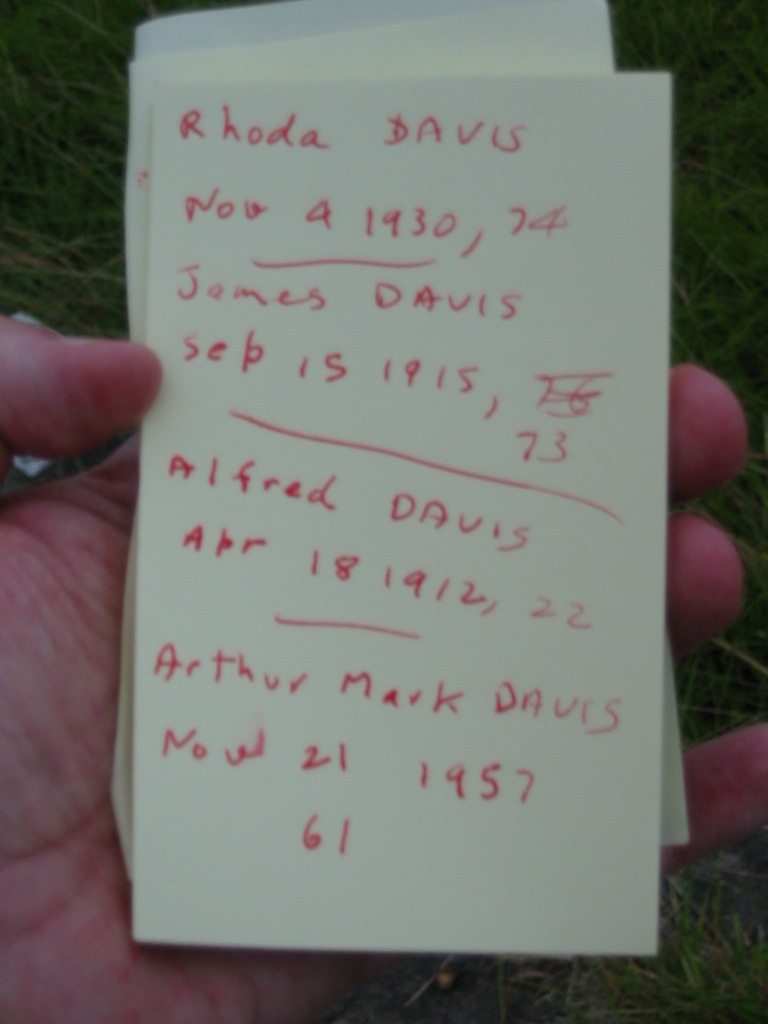 Rhoda DAVIS
Nov 4 1930, 74
James DAVIS
Sep 15 1915,
73
Alfred DAVIS
Apr 18 1912, 22
Arthur Mark DAVIS
Nov 21 1957
61